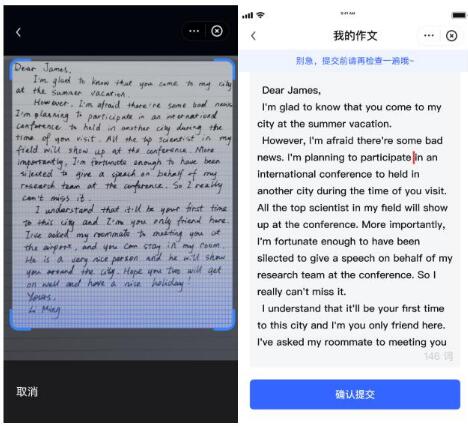 Dear James,
I'm glad to know that you come to my city
at the summer vacation.
However, I'm afraid there're some bad news.
I'm planning to participate in an
conference to held in another city during the
time of you visit. All the top scientist in my
field will show up at the conference. More
importantly, I'm fortunate enough to have been
silected to give a speech on behalf of my
research team at the conference. So I really
can't miss it.
I understand that it'll be your first time
to this city and I'm you only friend here.
I've asked my roommate to meeting you at
the airport, and you can stay in my room.
He is a very nice person and he will show
you around the city. Hope you two will get
on well and have a nice holiday!
Yours,
Li Ming
取消
我的作文
别急，提交前请再检查一遍哦~
Dear James,
I'm glad to know that you come to my
city at the summer vacation.
However, I'm afraid there're some bad
news. I'm planning to participate in an
international conference to held in
another city during the time of you visit.
All the top scientist in my field will show
up at the conference. More importantly,
I'm fortunate enough to have been
silected to give a speech on behalf of my
research team at the conference. So I
really can't miss it.
I understand that it'll be your first time
to this city and I'm you only friend here.
I've asked my roommate to meeting you
146 词
确认提交